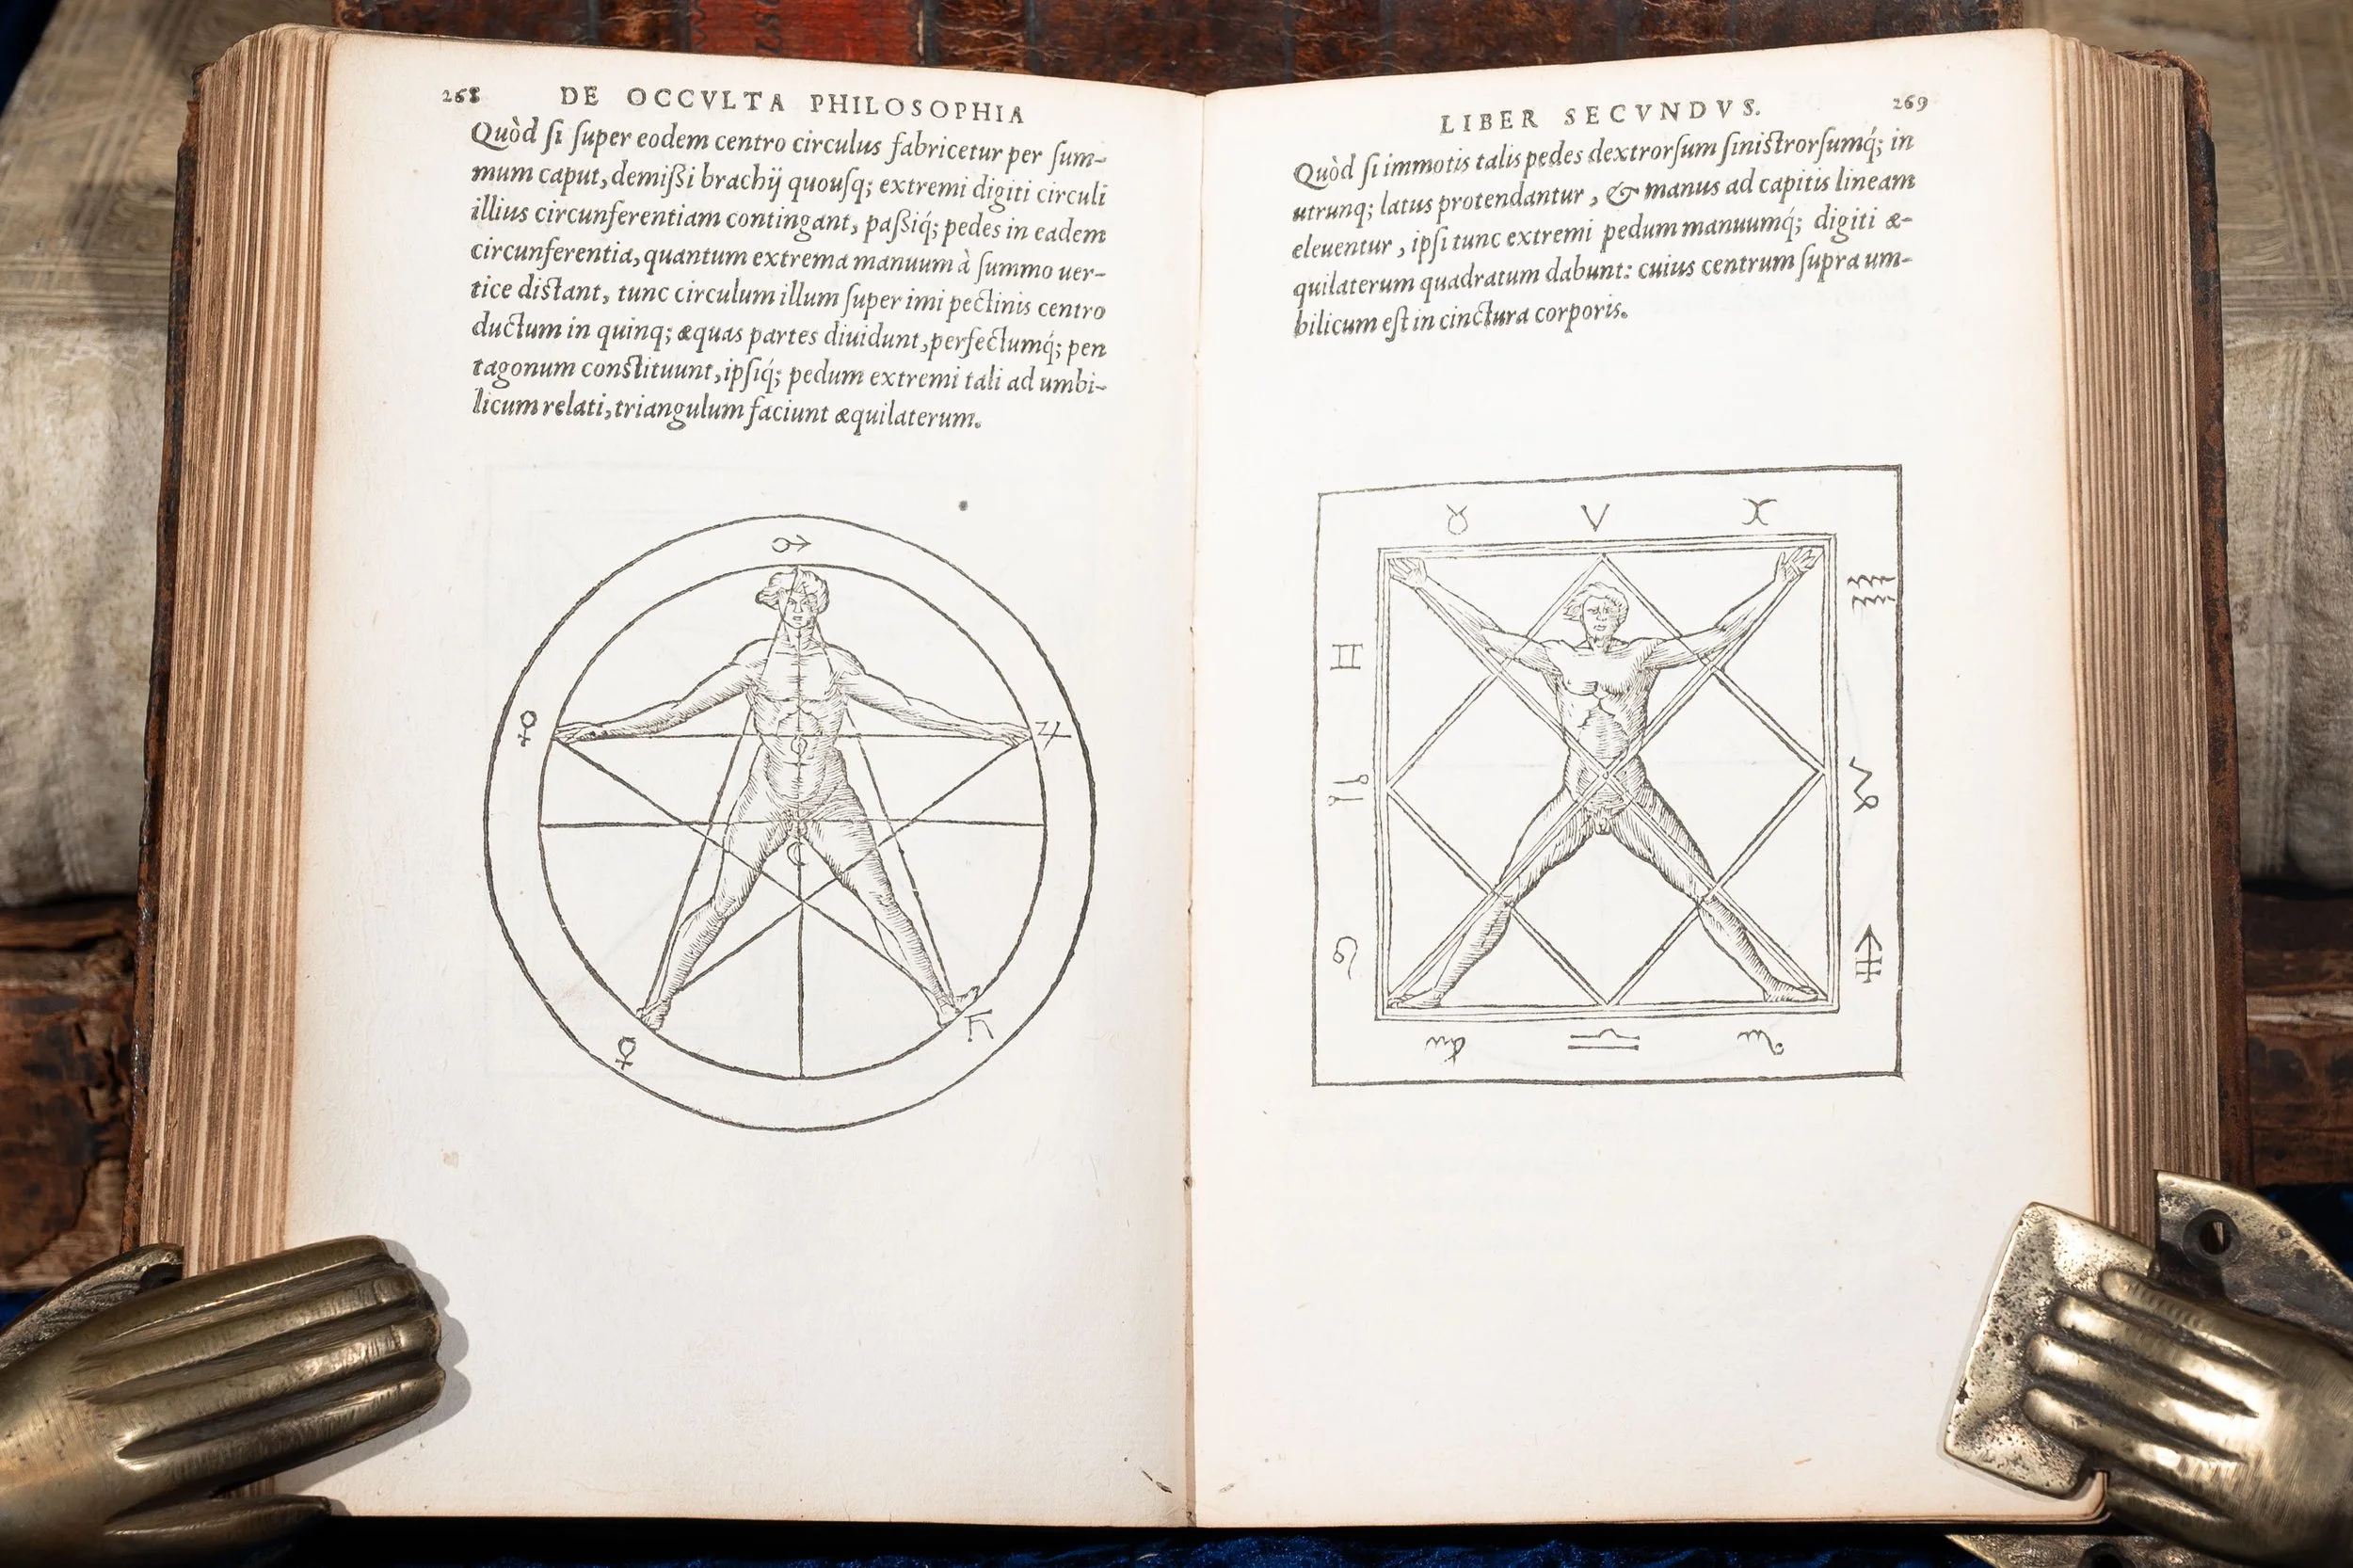 268 DE OCCVLTA PHILOSOPHIA
Quòd ſi ſuper eodem centro circulus fabricetur per ſum-
mum caput, demißi brachij quouſq; extremi digiti circuli
illius circunferentiam contingant, paßiq́; pedes in eadem
circunferentia, quantum extrema manuum à ſummo uer-
tice diſtant, tunc circulum illum ſuper imi pectinis centro
ductum in quinq; æquas partes diuidunt, perfectumq́; pen
tagonum conſtituunt, ipſiq́; pedum extremi tali ad umbi-
licum relati, triangulum faciunt æquilaterum.
♂
♀ ♃
☾
♀ ♄
LIBER SECVNDVS. 269
Quòd ſi immotis talis pedes dextrorſum ſiniſtrorſumq́; in
utrunq; latus protendantur, & manus ad capitis lineam
eleuentur, ipſi tunc extremi pedum manuumq́; digiti æ-
quilaterum quadratum dabunt: cuius centrum ſupra um-
bilicum eſt in cinctura corporis.
♉ ♈ ♓
♊ ♒
♋ ♑
♌ ♐
♍ ♎ ♏